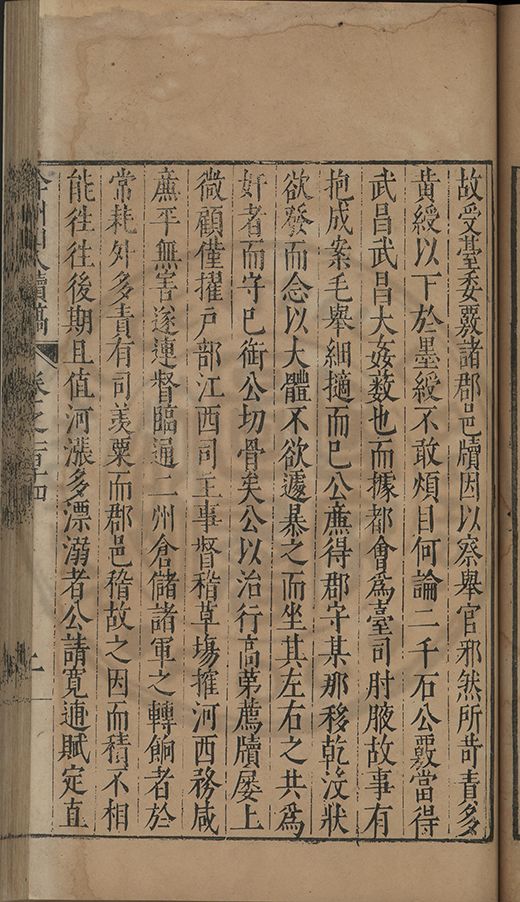 故受臺委覈諸郡邑牘因以察舉官邪然所苛責多
黃綬以下於墨綬不敢煩目何論二千石公覈當得
武昌武昌大姦藪也而據都會爲臺司肘腋故事有
抱成案毛舉細擿而已公廉得郡守某那移乾沒狀
欲發而念以大體不欲遽暴之而坐其左右之共爲
奸者而守已銜公切骨矣公以治行高第薦牘屡上
微顧僅擢戸部江西司主事督稽草塲搉河西務咸
廉平無害遂連督臨通二州倉儲諸軍之轉餉者於
常耗外多責有司羡粟而郡邑稽故之因而積不相
能徃徃後期且值河漲多漂溺者公請寬逋賦定直
弇州山人續稿 卷之一百十四